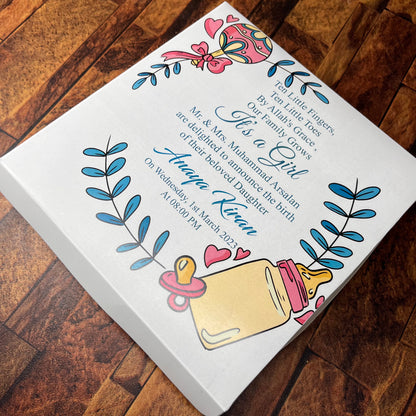 Ten Little Fingers,
Ten Little Toes
By Allah's Grace,
Our Family Grows
It's a Girl
Mr. & Mrs. Muhammad Arsalan
are delighted to announce the birth
of their beloved Daughter
Anaya Kiran
On Wednesday, 1st March 2023
At 08:00 PM